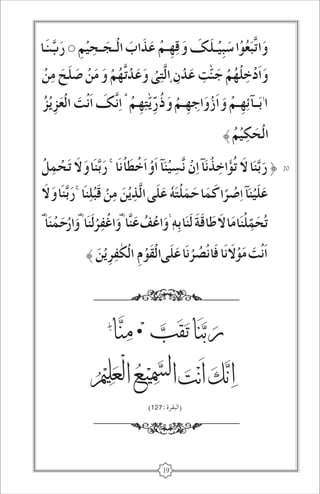 وَاتَّبَعُوْا سَبِيْلَكَ وَ قِهِمْ عَذَابَ الْجَحِيْمِ ○ رَبَّنَا
وَاَدْخِلْهُمْ جَنّٰتِ عَدْنِ ِۨالَّتِيْ وَعَدْتَّهُمْ وَ مَنْ صَلَحَ مِنْ
اٰبَآئِهِمْ وَ اَزْوَاجِهِمْ وَ ذُرِّيّٰتِهِمْ ؕ اِنَّكَ اَنْتَ الْعَزِيْزُ
الْحَكِيْمُ ﴾
20 ﴿ رَبَّنَا لَا تُؤَاخِذْنَآ اِنْ نَّسِيْنَآ اَوْ اَخْطَاْنَا ۚ رَبَّنَا وَ لَا تَحْمِلْ
عَلَيْنَآ اِصْرًا كَمَا حَمَلْتَهٗ عَلَى الَّذِيْنَ مِنْ قَبْلِنَا ۚ رَبَّنَا وَ لَا
تُحَمِّلْنَا مَا لَا طَاقَةَ لَنَا بِهٖ ۚ وَاعْفُ عَنَّا ٝ وَاغْفِرْ لَنَا ٝ وَارْحَمْنَا ٝ
اَنْتَ مَوْلٰىنَا فَانْصُرْنَا عَلَى الْقَوْمِ الْكٰفِرِيْنَ ﴾
رَبَّنَا تَقَبَّلْ مِنَّا ؕ
اِنَّكَ اَنْتَ السَّمِيْعُ الْعَلِيْمُ
(البقرة: 127)
19